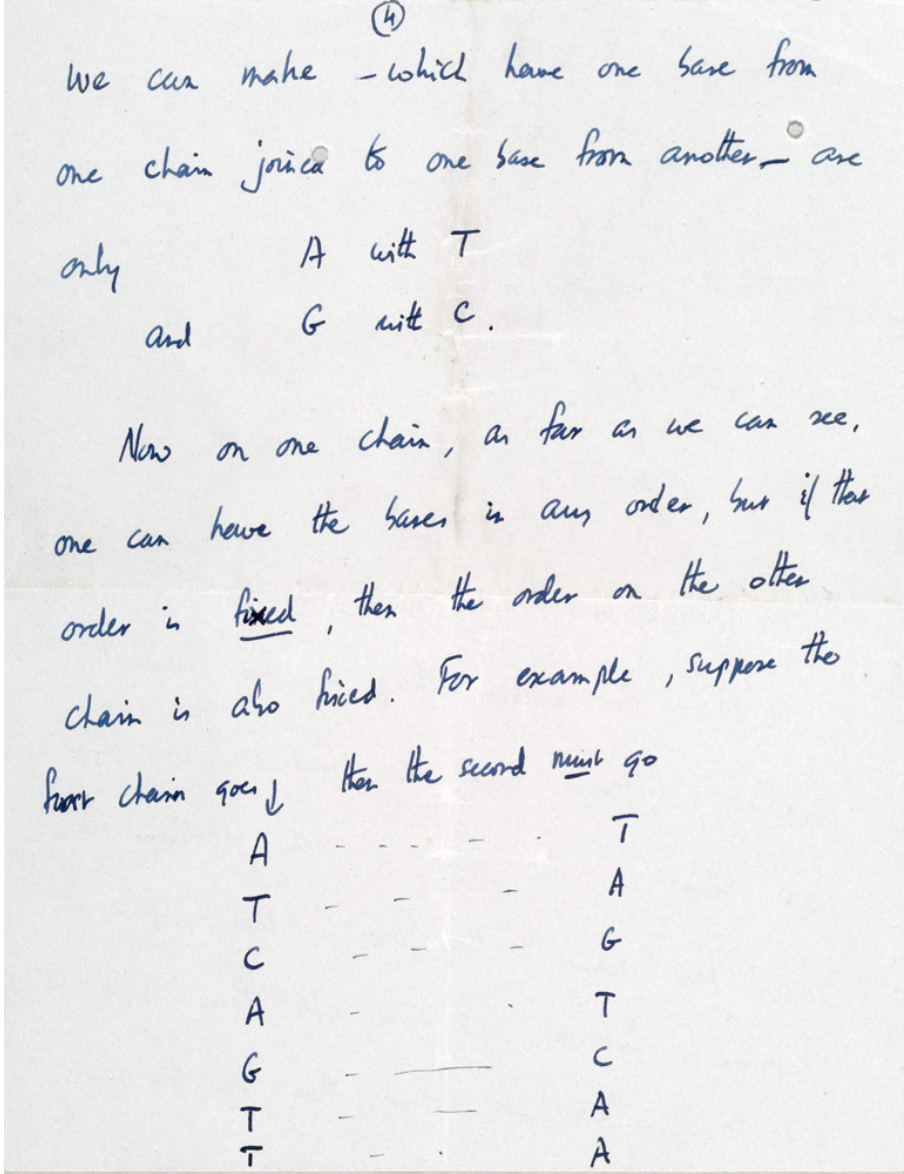 4
we can make – which have one base from
one chain joined to one base from another – are
only A with T
and G with C.
Now on one chain, as far as we can see,
one can have the bases in any order, but if that
order is fixed, then the order on the other
chain is also fixed. For example, suppose the
first chain goes ↓ then the second must go
A - - - - - T
T - - - A
C - - - G
A - - T
G - — C
T - — A
T - - A